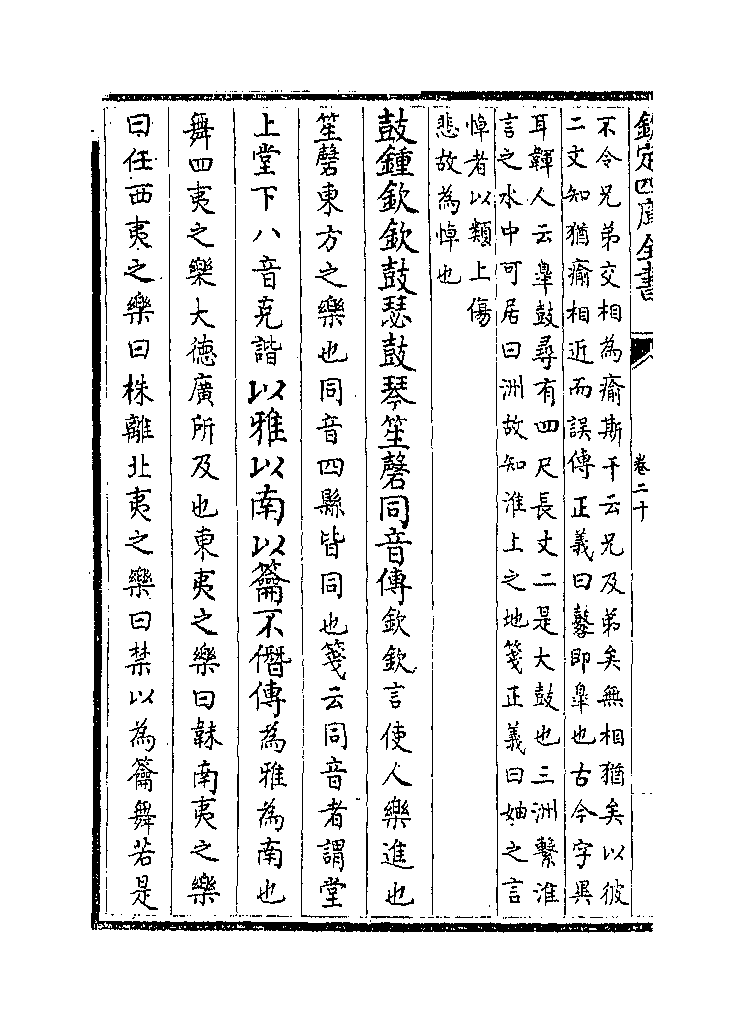 欽定四庫全書
卷二十
不令兄弟交相為瘉斯干云兄及弟矣無相猶矣以彼
二文知猶瘉相近而誤傳正義曰鼛即臯也古今字異
耳韗人云臯鼓尋有四尺長丈二是大鼓也三洲繫淮
言之水中可居曰洲故知淮上之地箋正義曰妯之言
悼者以類上傷
悲故為悼也
鼓鍾欽欽鼓瑟鼓琴笙磬同音傳欽欽言使人樂進也
笙磬東方之樂也同音四縣皆同也箋云同音者謂堂
上堂下八音克諧以雅以南以籥不僭傳為雅為南也
舞四夷之樂大德廣所及也東夷之樂曰韎南夷之樂
曰任西夷之樂曰株離北夷之樂曰禁以為籥舞若是